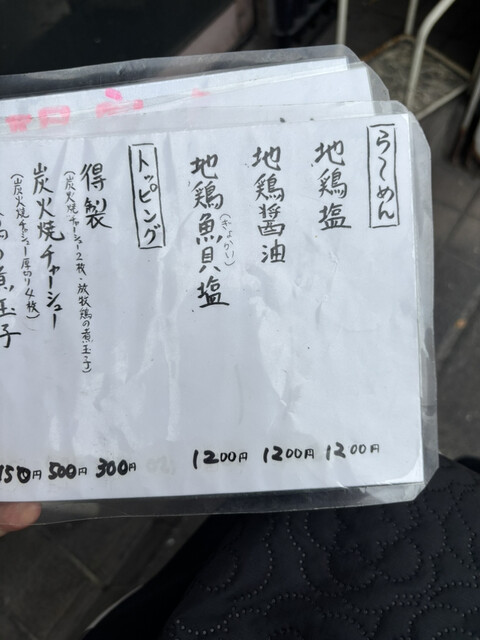 らーめん
地鶏塩
1200円
地鶏醤油
1200円
地鶏魚貝塩
(ぎょかい)
1200円
トッピング
得製
(炭火焼チャーシュー2枚、放牧鶏の煮玉子)
300円
炭火焼チャーシュー
(炭火焼チャシュー厚切り4枚)
500円
の煮玉子
150円